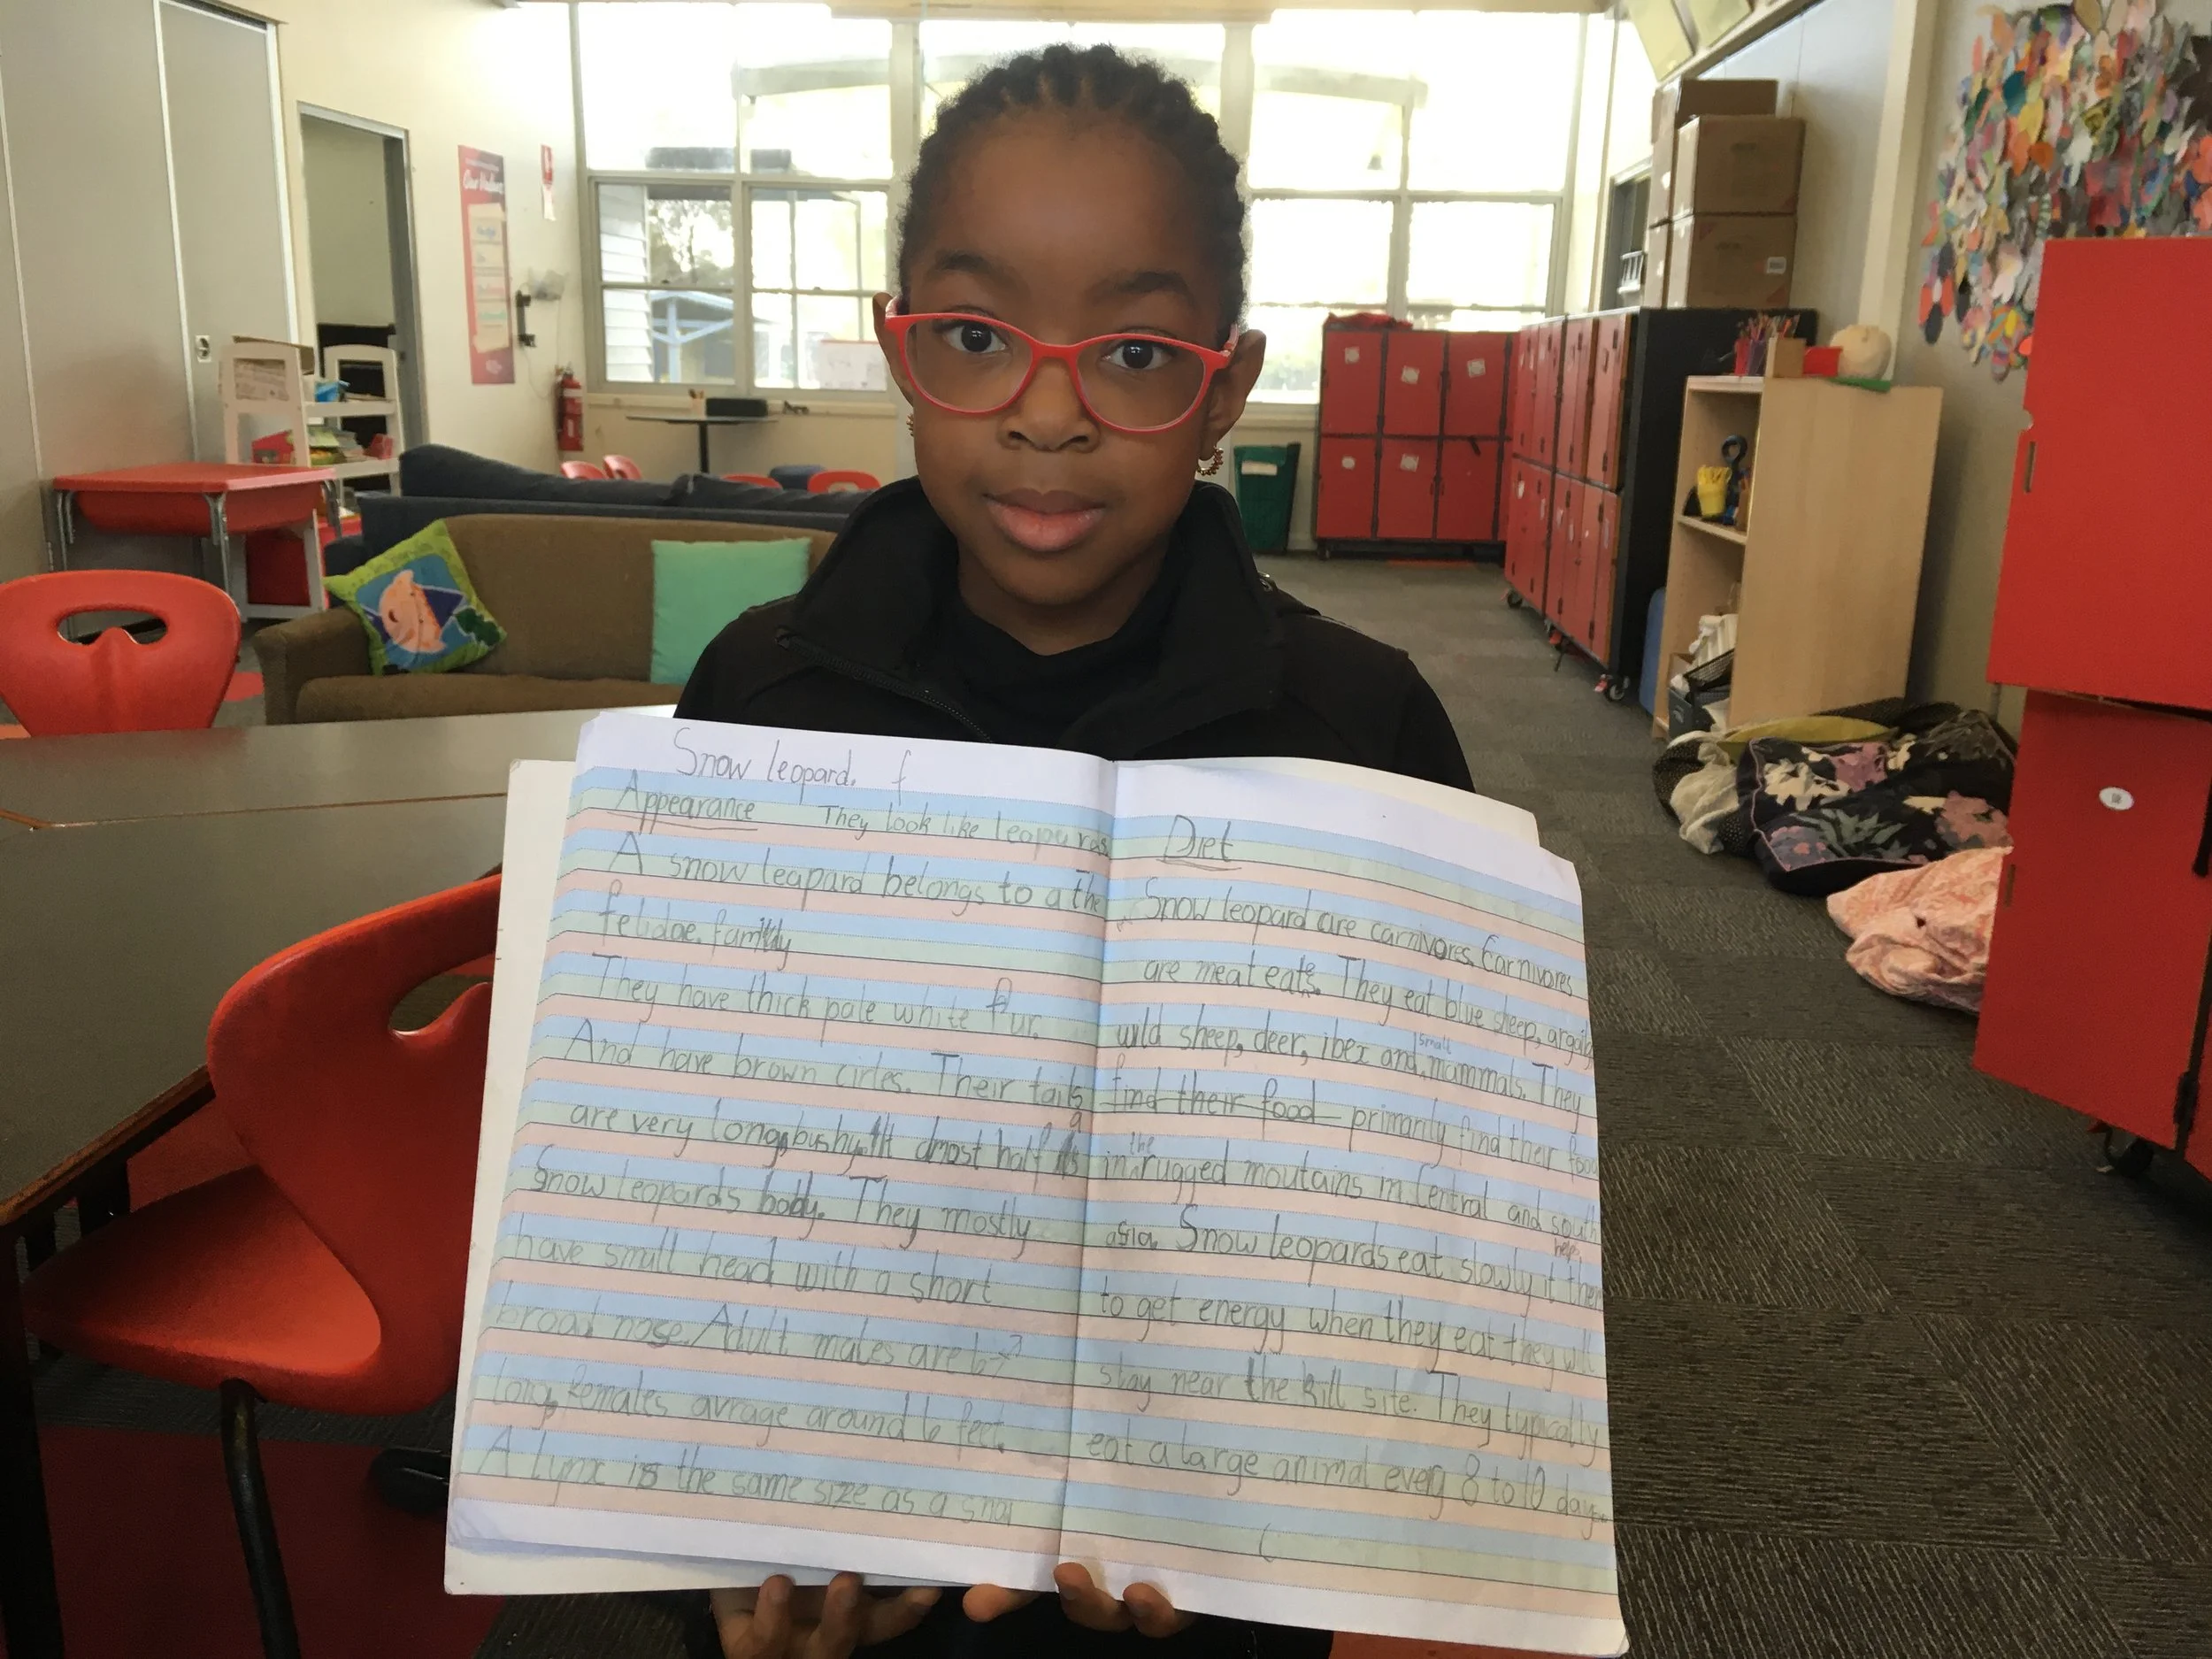 Our Values
Snow leopard. f
Appearance They look like leapurds
A snow leapard belongs to a the
felidae family
They have thick pale white fur.
And have brown cirles. Their tails
are very long, bushy. It almost half a
Snow leopards body. They mostly
have small head with a short
broad nose. Adult males are 6-7
long, females avrage around 6 feet.
A lynx is the same size as a sno
Diet
Snow leopard are carnivores. Carnivores
are meat eats. They eat blue sheep, argali,
wild sheep, deer, ibex and small mammals. They
find their food primarily find their food
in the rugged moutains in Central and south
asia. Snow leopards eat slowly it helps them
to get energy when they eat they will
stay near the kill site. They typically
eat a large animal every 8 to 10 days